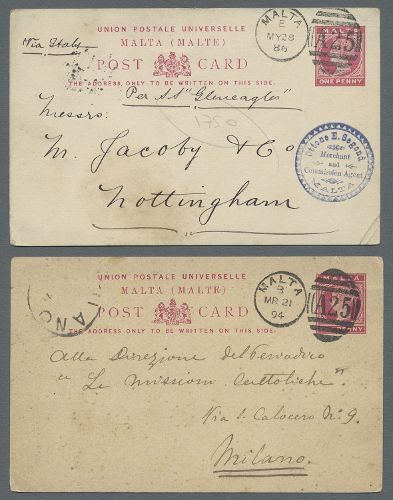 UNION POSTALE UNIVERSELLE
MALTA (MALTE)
Via Italy
POST CARD
THE ADDRESS ONLY TO BE WRITTEN ON THIS SIDE.
MALTA
E
MY 28
86
A25
ONE PENNY
Per S.S "Gleneagles"
1750
Messrs:
M. Jacoby & Co
Nottingham
Ottone E. Segond
Merchant
and
Commission Agent
MALTA
UNION POSTALE UNIVERSELLE
MALTA (MALTE)
POST CARD
THE ADDRESS ONLY TO BE WRITTEN ON THIS SIDE.
MALTA
B
MR 21
94
MALTA
A25
Alla Direzione del Periodico
"Le Missioni Cattoliche"
Via S. Calocero No 9.
Milano.